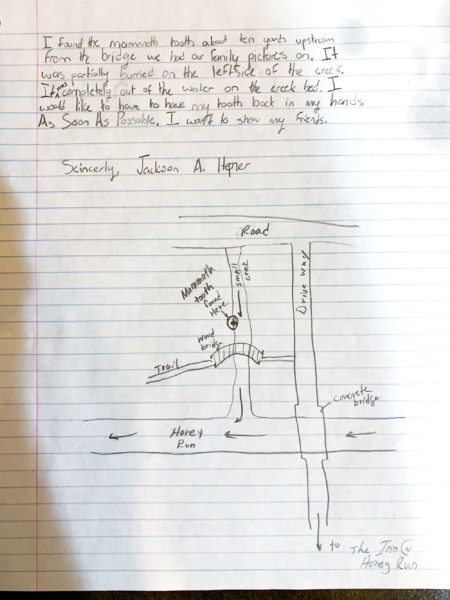 I found the mammoth tooth about ten yards upstream
from the bridge we had our family pictures on. It
was partially burried on the left side of the creek.
It was completely out of the water on the creek bed. I
would like to have to have my tooth back in my hands
As Soon As Possable. I want to show my friends.
Scincerly, Jackson A. Hepner
Road
Mammoth
tooth
found
Here
small
creek
Drive way
Wood
bridge
Trail
concrete
bridge
Honey
Run
to The Inn @
Honey Run